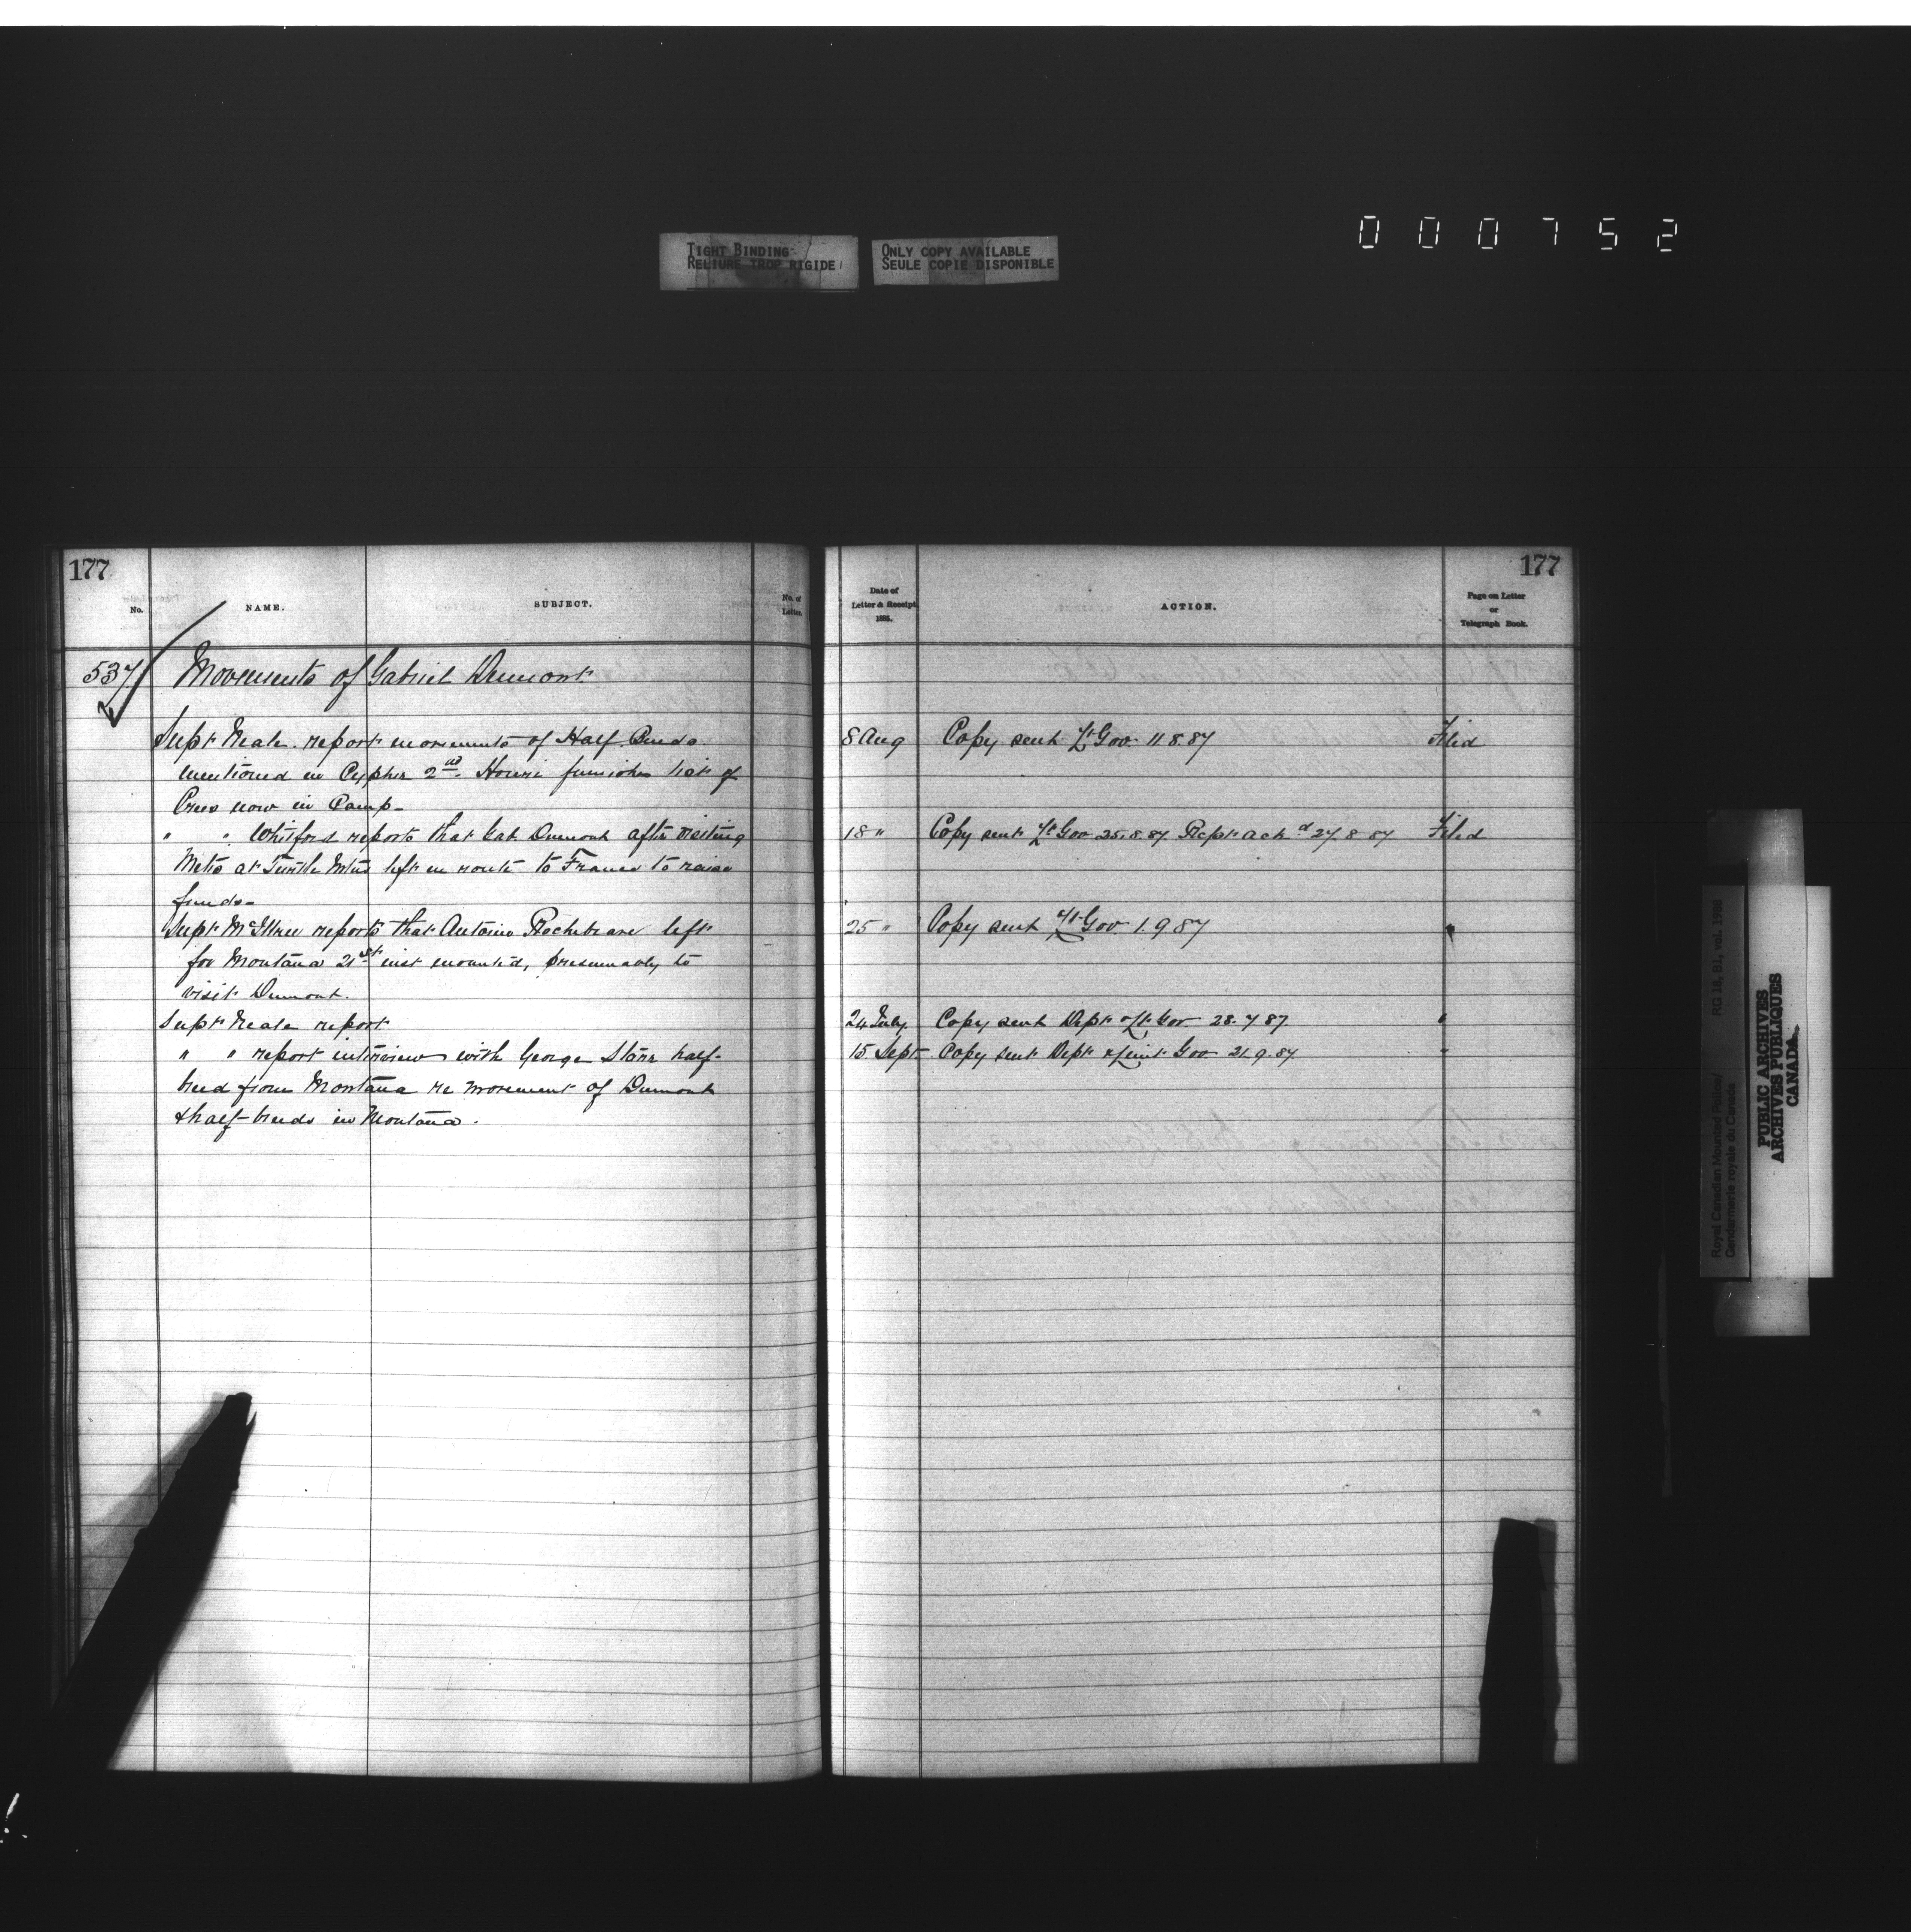 000752
TIGHT BINDING
RELIURE TROP RIGIDE
ONLY COPY AVAILABLE
SEULE COPIE DISPONIBLE
177
No.
NAME.
SUBJECT.
No. of
Letter.
537 Movements of Gabriel Dumont
Supt Neale report movements of Half Breeds
mentioned in Cypher 2nd. Hourie furnishes list of
Crees now in Camp-
" " Whitford reports that Gab Dumont after visiting
Metis at Turtle Mtns left en route to France to raise
funds-
Supt McIllree reports that Antoine left
for Montana 21st inst mounted, presumably to
visit Dumont.
Supt Neale report
" " report interview with George Starr half-
breed from Montana re movement of Dumont
& half-breeds in Montana.
177
Date of
Letter & Receipt,
1885.
ACTION.
Page on Letter
or
Telegraph Book.
8 Aug Copy sent Lt Gov. 11.8.87 Filed
18 " Copy sent Lt Gov 25.8.87. Rept ackd 27.8.87 Filed
25 " Copy sent Lt Gov 1.9.87 "
24 July. Copy sent Dept & Lt Gov 28.7.87 "
15 Sept Copy sent Dept & Lieut Gov 21.9.87. "
Royal Canadian Mounted Police/
Gendarmerie royale du Canada
RG 18, B1, vol. 1986
PUBLIC ARCHIVES
ARCHIVES PUBLIQUES
CANADA